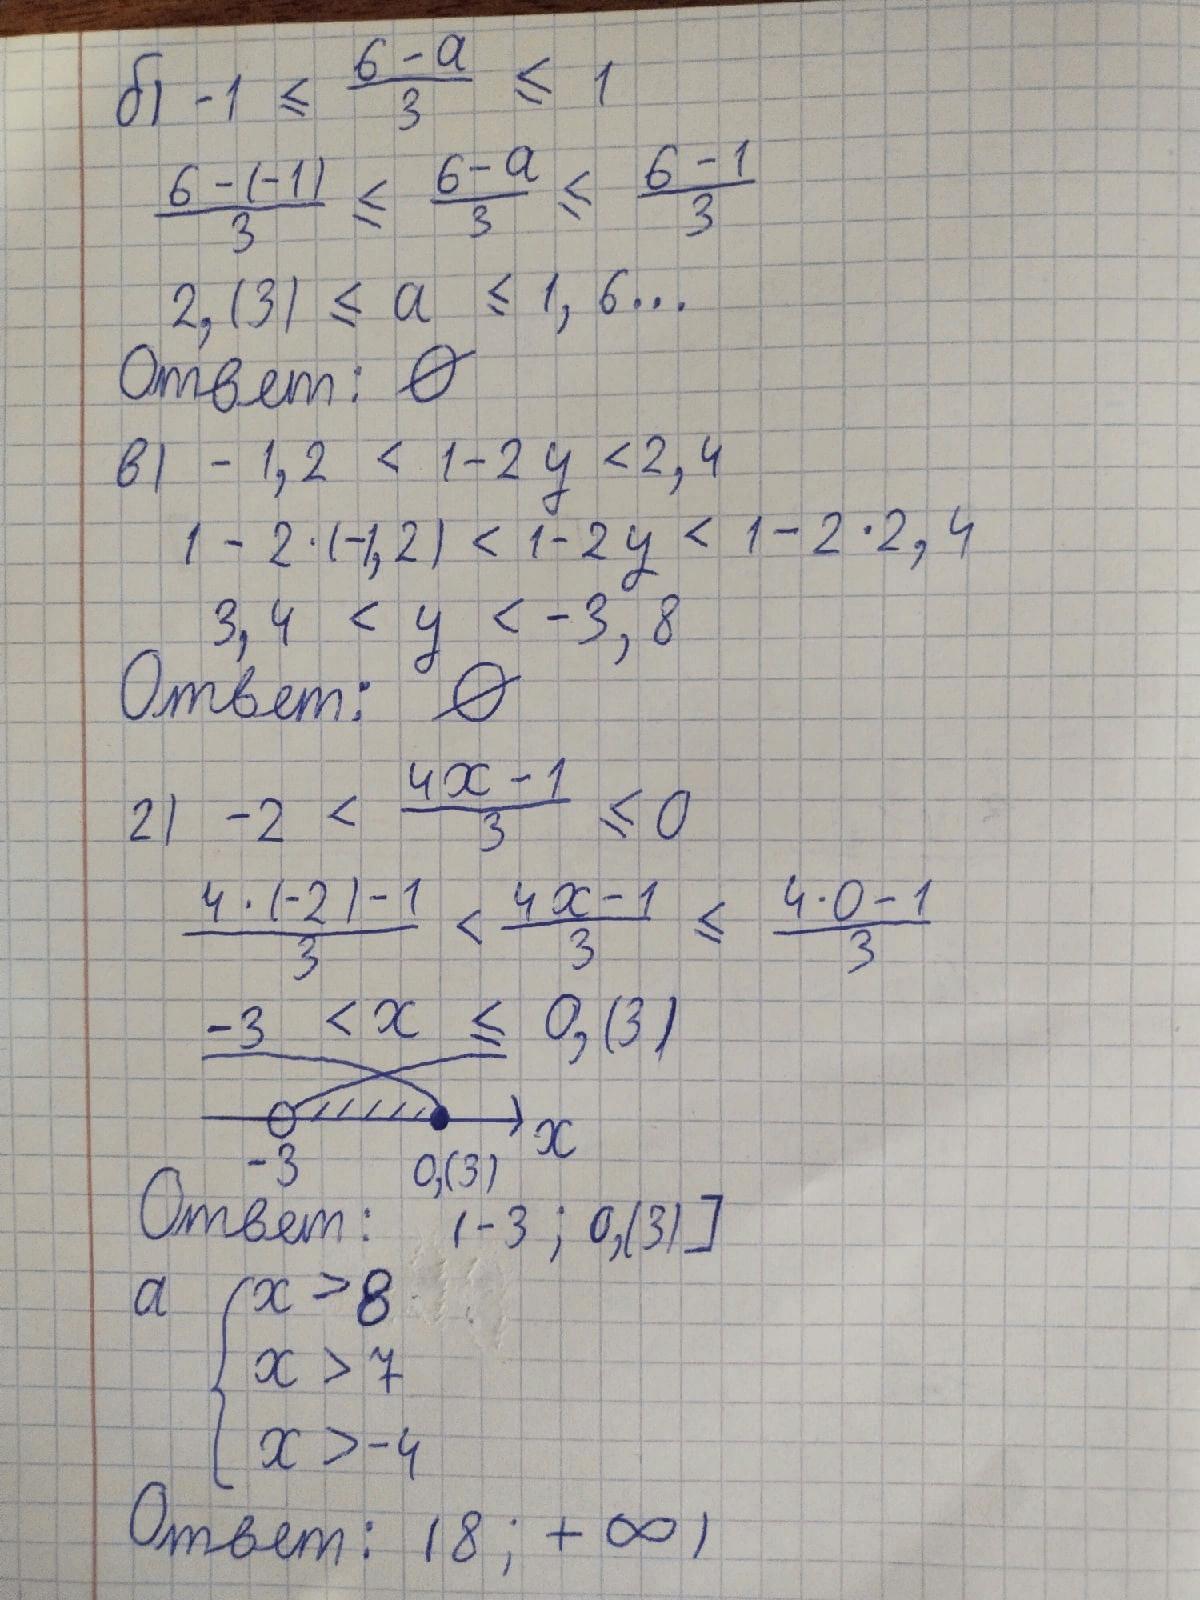 б) -1 ≤ (6-a)/3 ≤ 1
(6-(-1))/3 ≤ (6-a)/3 ≤ (6-1)/3
2,(3) ≤ a ≤ 1,6...
Ответ: ∅
в) -1,2 < 1-2y < 2,4
1-2·(-1,2) < 1-2y < 1-2·2,4
3,4 < y < -3,8
Ответ: ∅
г) -2 < (4x-1)/3 ≤ 0
(4·(-2)-1)/3 < (4x-1)/3 ≤ (4·0-1)/3
-3 < x ≤ 0,(3)
x
-3 0,(3)
Ответ: (-3; 0,(3)]
а { x > 8
x > 7
x > -4
Ответ: (8; +∞)